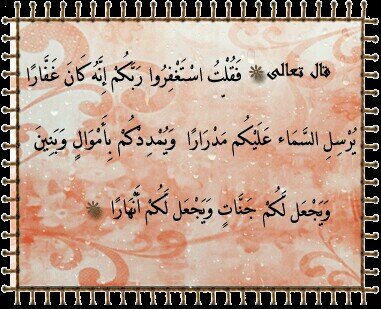 قال تعالى ❋ فَقُلْتُ اسْتَغْفِرُوا رَبَّكُمْ إِنَّهُ كَانَ غَفَّارًا
يُرْسِلِ السَّمَاء عَلَيْكُم مِّدْرَارًا وَيُمْدِدْكُمْ بِأَمْوَالٍ وَبَنِينَ
وَيَجْعَل لَّكُمْ جَنَّاتٍ وَيَجْعَل لَّكُمْ أَنْهَارًا ❋